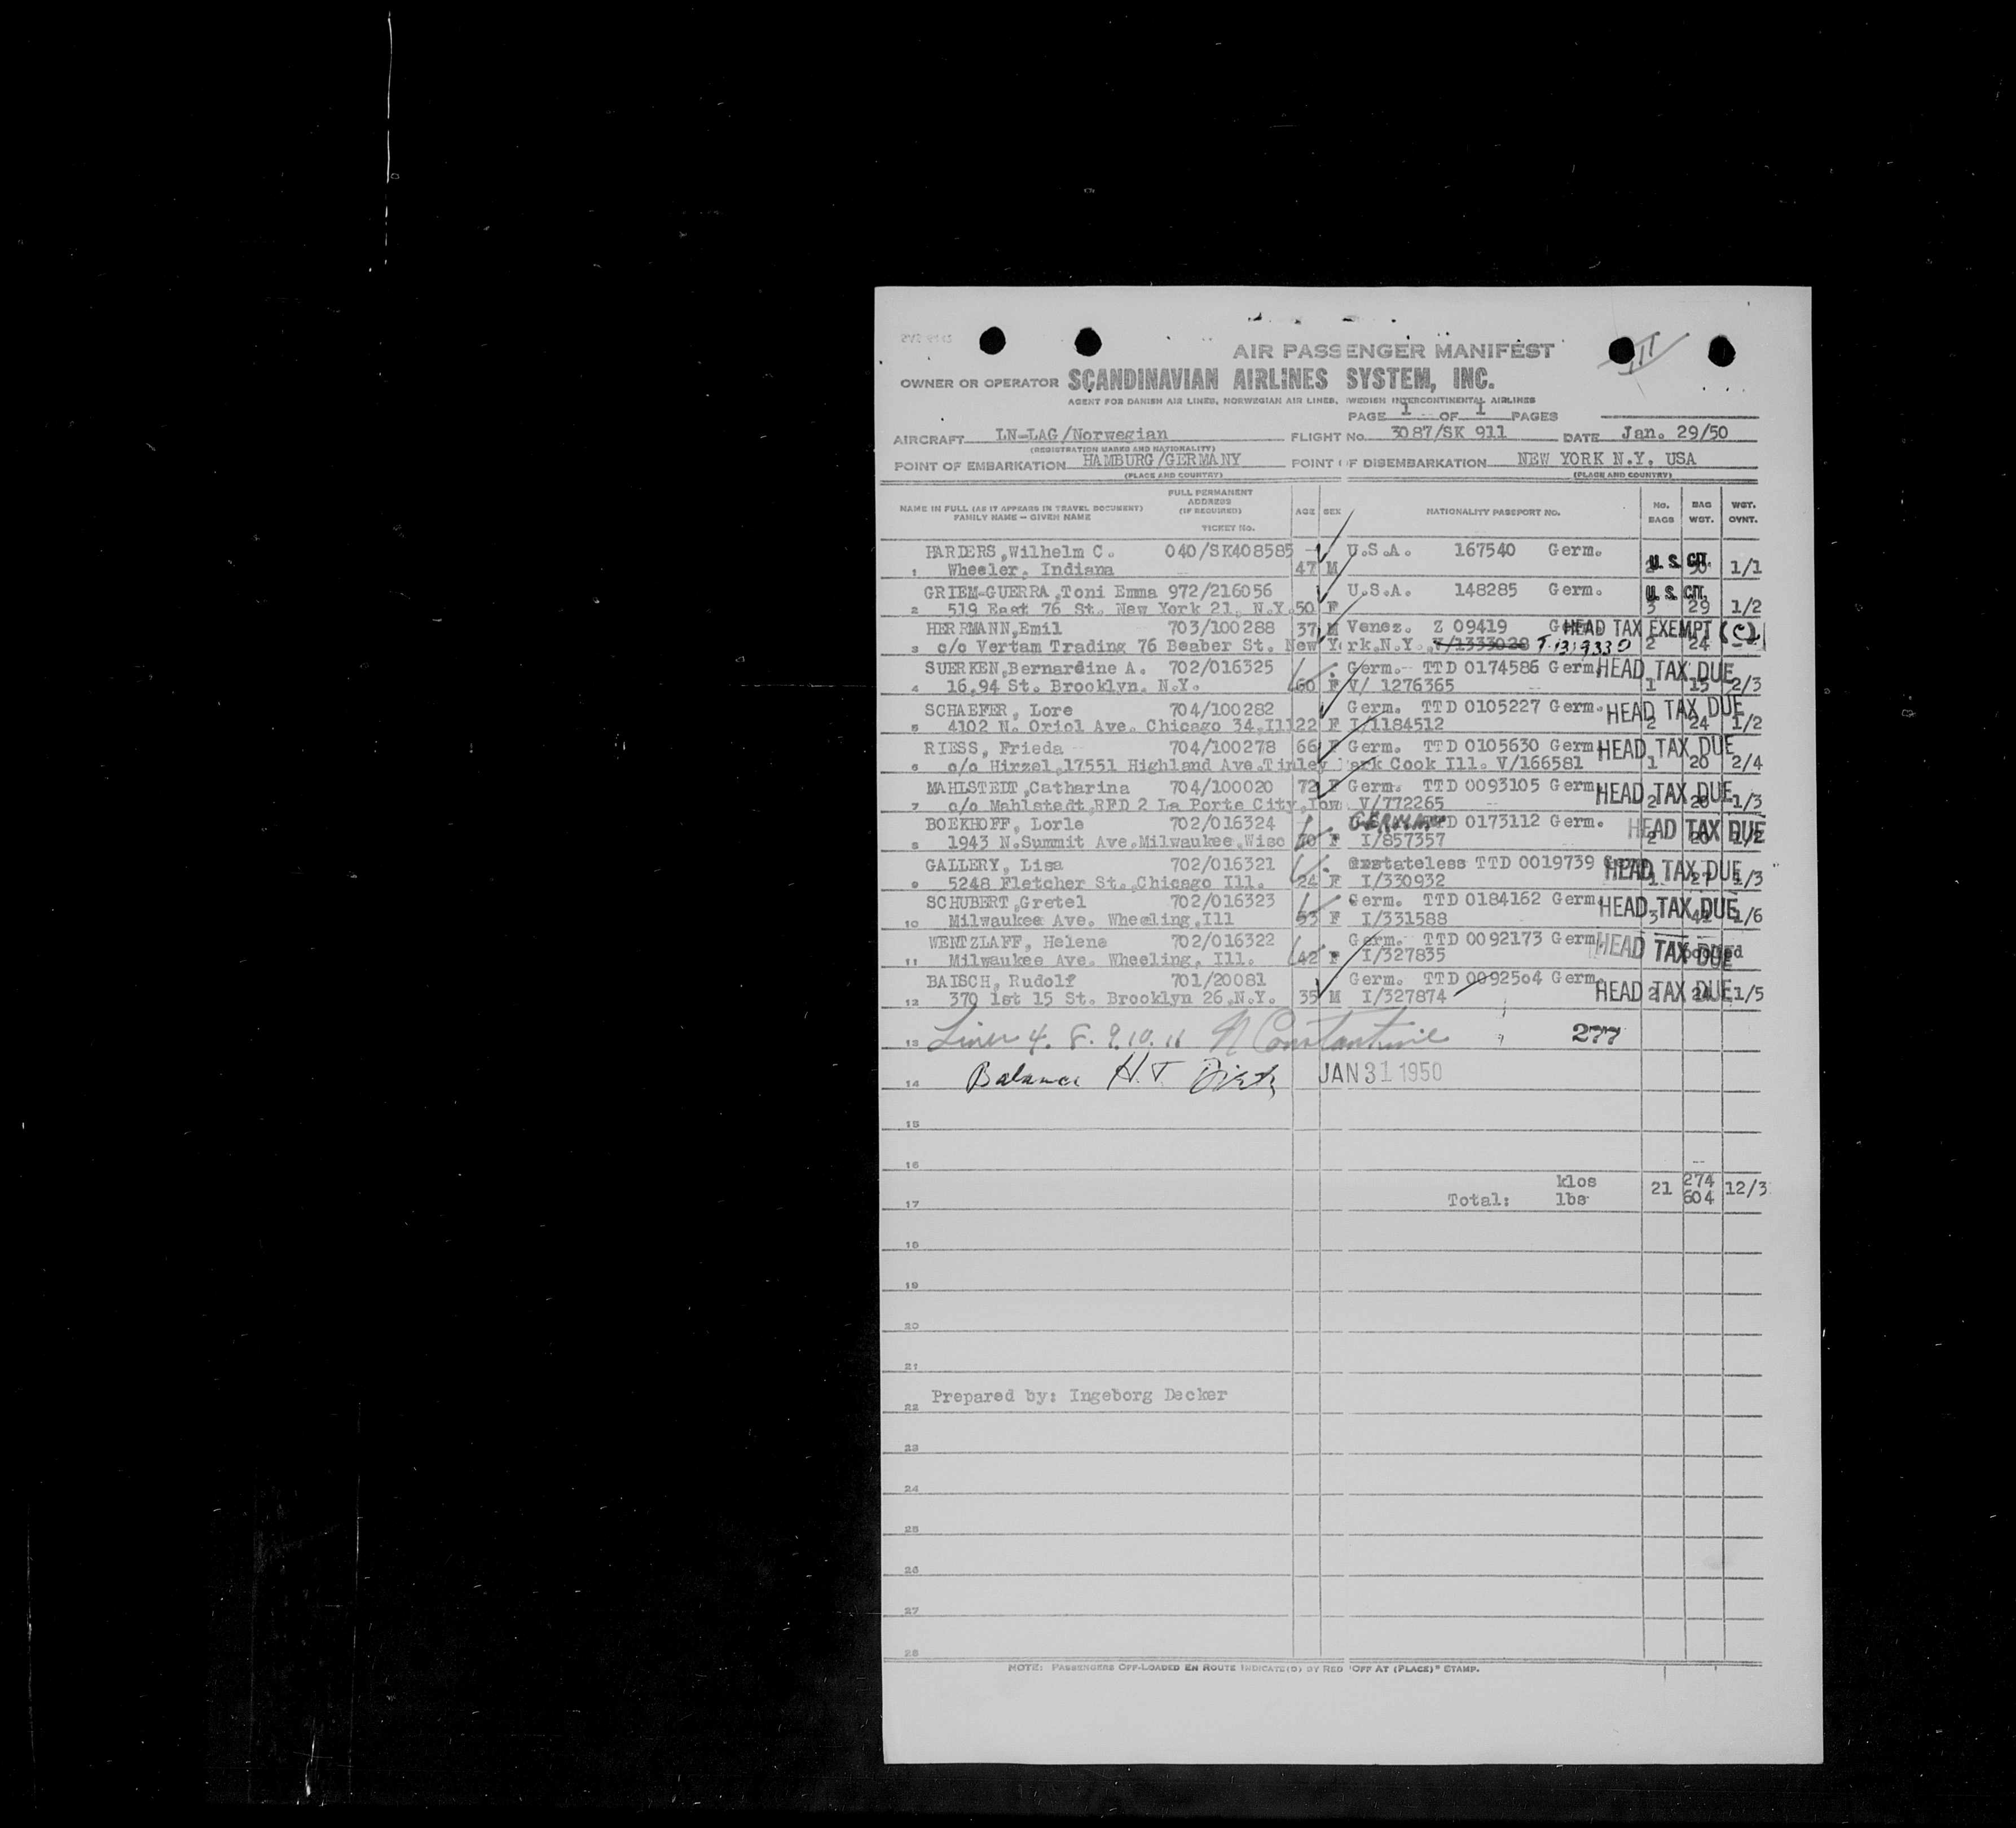 AIR PASSENGER MANIFEST
OWNER OR OPERATOR SCANDINAVIAN AIRLINES SYSTEM, INC.
AGENT FOR DANISH AIR LINES, NORWEGIAN AIR LINES, SWEDISH INTERCONTINENTAL AIRLINES
PAGE 1 OF 1 PAGES
AIRCRAFT LN-LAG/Norwegian FLIGHT No. 3087/SK 911 DATE Jan. 29/50
(REGISTRATION MARKS AND NATIONALITY)
POINT OF EMBARKATION HAMBURG/GERMANY POINT OF DISEMBARKATION NEW YORK N.Y. USA
(PLACE AND COUNTRY) (PLACE AND COUNTRY)
NAME IN FULL (AS IT APPEARS IN TRAVEL DOCUMENT) FAMILY NAME - GIVEN NAME FULL PERMANENT ADDRESS (IF REQUIRED) TICKET No. AGE SEX NATIONALITY PASSPORT NO. No. BAGS BAG WGT. WGT. OVNT.
HARDERS,Wilhelm C. 040/SK408585 U.S.A. 167540 Germ. U. S. CIT.
1 Wheeler, Indiana 47 M 1/1
GRIEM-GUERRA,Toni Emma 972/216056 U.S.A. 148285 Germ. U. S. CIT.
2 519 East 76 St. New York 21, N.Y. 50 F 3 29 1/2
HERRMANN,Emil 703/100288 37 M Venez. Z 09419 HEAD TAX EXEMPT (C)
3 c/o Vertam Trading 76 Beaber St. New York.N.Y. V/1333028 T-1319330 2 24
SUERKEN,Bernardine A. 702/016325 Germ. TTD 0174586 Germ. HEAD TAX DUE
4 16,94 St. Brooklyn. N.Y. 60 F V/ 1276365 1 15 2/3
SCHAEFER, Lore 704/100282 Germ. TTD 0105227 Germ. HEAD TAX DUE
5 4102 N. Oriol Ave. Chicago 34,Ill 22 F I/1184512 2 24 1/2
RIESS, Frieda 704/100278 66 F Germ. TTD 0105630 Germ. HEAD TAX DUE
6 c/o Hirzel,17551 Highland Ave.Tinley Park Cook Ill. V/166581 1 20 2/4
MAHLSTEDT,Catharina 704/100020 72 F Germ. TTD 0093105 Germ. HEAD TAX DUE
7 c/o Mahlstedt,RFD 2 La Porte City,Iow V/772265 2 20 1/3
BOEKHOFF, Lorle 702/016324 GERMAN TTD 0173112 Germ. HEAD TAX DUE
8 1943 N.Summit Ave.Milwaukee,Wisc F I/857357 2 20 1/2
GALLERY, Lisa 702/016321 stateless TTD 0019739 HEAD TAX DUE
9 5248 Fletcher St.,Chicago Ill. 24 F I/330932 1 27 1/3
SCHUBERT,Gretel 702/016323 Germ. TTD 0184162 Germ. HEAD TAX DUE
10 Milwaukee Ave. Wheeling,Ill 53 F I/331588 3 1/6
WENTZLAFF, Helene 702/016322 Germ. TTD 0092173 Germ. HEAD TAX DUE
11 Milwaukee Ave. Wheeling, Ill. 42 F I/327835 pooled
BAISCH, Rudolf 701/20081 Germ. TTD 0092504 Germ. HEAD TAX DUE
12 370 1st 15 St. Brooklyn 26,N.Y. 35 M I/327874 2 24 1/5
13 Lines 4. 8. 9. 10. 11 N Constantine 277
14 Balance H.T. JAN 31 1950
15
16
klos 274
17 Total: lbs 21 604 12/3
18
19
20
21
22 Prepared by: Ingeborg Decker
23
24
25
26
27
28
NOTE: PASSENGERS OFF-LOADED EN ROUTE INDICATE(D) BY RED "OFF AT (PLACE)" STAMP.